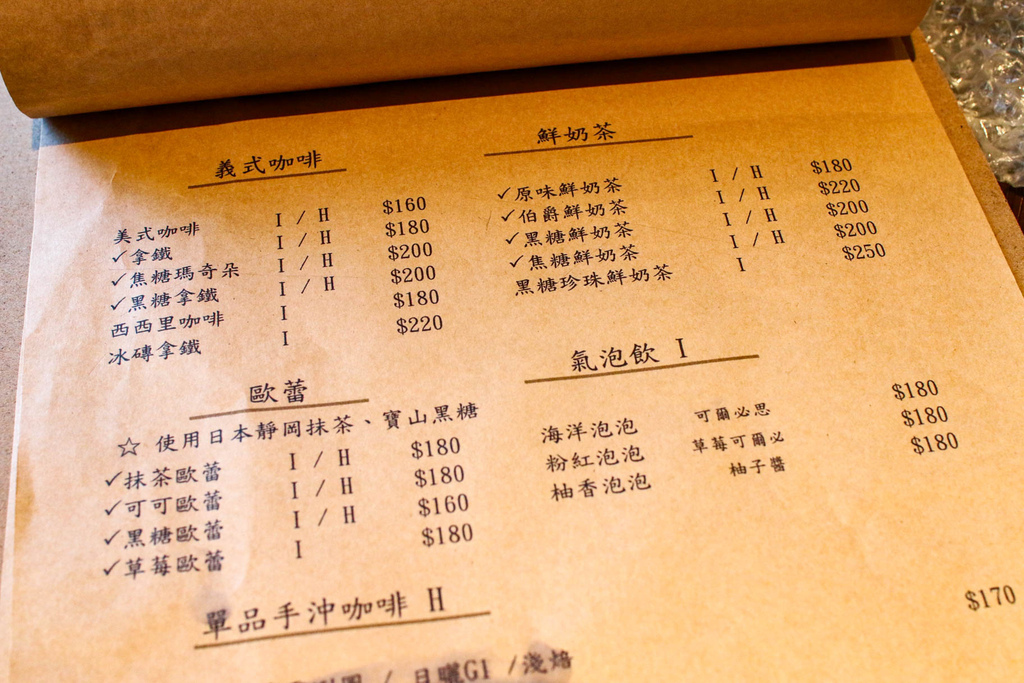 義式咖啡
美式咖啡 I / H $160
✓拿鐵 I / H $180
✓焦糖瑪奇朵 I / H $200
✓黑糖拿鐵 I / H $200
西西里咖啡 I $180
冰磚拿鐵 I $220
歐蕾
☆ 使用日本靜岡抹茶、寶山黑糖
✓抹茶歐蕾 I / H $180
✓可可歐蕾 I / H $180
✓黑糖歐蕾 I / H $160
✓草莓歐蕾 I $180
單品手沖咖啡 H
/ 日曬G1 /淺焙
鮮奶茶
✓原味鮮奶茶 I / H $180
✓伯爵鮮奶茶 I / H $220
✓黑糖鮮奶茶 I / H $200
✓焦糖鮮奶茶 I / H $200
黑糖珍珠鮮奶茶 I $250
氣泡飲 I
海洋泡泡 可爾必思 $180
粉紅泡泡 草莓可爾必 $180
柚香泡泡 柚子醬 $180
$170